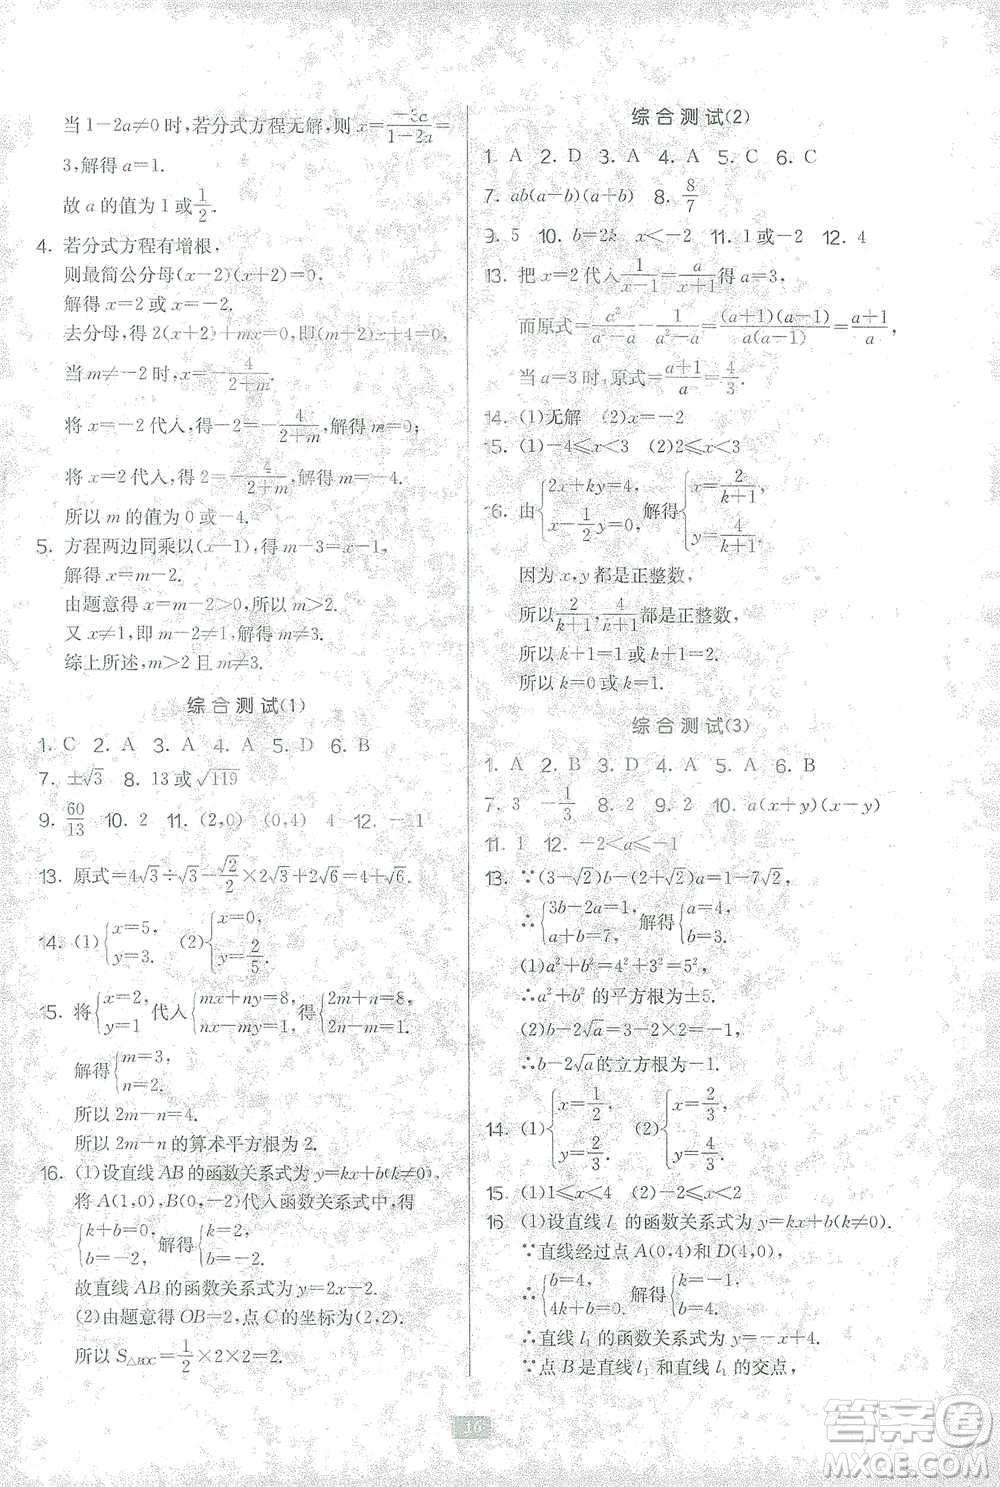 当1-2a≠0时,若分式方程无解,则x=-3a/(1-2a)=
3,解得a=1.
故a的值为1或1/2.
4. 若分式方程有增根,
则最简公分母(x-2)(x+2)=0,
解得x=2或x=-2.
去分母,得2(x+2)+mx=0,即(m+2)x+4=0,
当m≠-2时,x=-4/(2+m),
将x=-2代入,得-2=-4/(2+m),解得m=0;
将x=2代入,得2=-4/(2+m),解得m=-4.
所以m的值为0或-4.
5. 方程两边同乘以(x-1),得m-3=x-1,
解得x=m-2.
由题意得x=m-2>0,所以m>2.
又x≠1,即m-2≠1,解得m≠3.
综上所述,m>2且m≠3.
综合测试(1)
1. C 2. A 3. A 4. A 5. D 6. B
7. ±√3 8. 13或√119
9. 60/13 10. 2 11. (2,0) (0,4) 4 12. -1
13. 原式=4√3÷√3-√2/2×2√3+2√6=4+√6.
14. (1){x=5, y=3. (2){x=0, y=2/5.
15. 将{x=2, y=1代入{mx+ny=8, nx-my=1,得{2m+n=8, 2n-m=1.
解得{m=3, n=2.
所以2m-n=4.
所以2m-n的算术平方根为2.
16. (1)设直线AB的函数关系式为y=kx+b(k≠0),
将A(1,0),B(0,-2)代入函数关系式中,得
{k+b=0, b=-2, 解得{k=2, b=-2.
故直线AB的函数关系式为y=2x-2.
(2)由题意得OB=2,点C的坐标为(2,2).
所以S△BOC=1/2×2×2=2.
综合测试(2)
1. A 2. D 3. A 4. A 5. C 6. C
7. ab(a-b)(a+b) 8. 8/7
9. 5 10. b=2k x<-2 11. 1或-2 12. 4
13. 把x=2代入1/(x-1)=a/(x+1)得a=3,
而原式=a²/(a²-a)-1/(a²-a)=(a+1)(a-1)/a(a-1)=(a+1)/a,
当a=3时,原式=(a+1)/a=4/3.
14. (1)无解 (2)x=-2
15. (1)-4≤x<3 (2)2≤x<3
16. 由{2x+ky=4, x-1/2y=0,解得{x=2/(k+1), y=4/(k+1).
因为x,y都是正整数,
所以2/(k+1),4/(k+1)都是正整数,
所以k+1=1或k+1=2.
所以k=0或k=1.
综合测试(3)
1. A 2. B 3. D 4. A 5. A 6. B
7. 3 -1/3 8. 2 9. 2 10. a(x+y)(x-y)
11. 1 12. -2<a≤-1
13. ∵(3-√2)b-(2+√2)a=1-7√2,
∴{3b-2a=1, a+b=7,解得{a=4, b=3.
(1)a²+b²=4²+3²=5²,
∴a²+b²的平方根为±5.
(2)b-2√a=3-2×2=-1.
∴b-2√a的立方根为-1.
14. (1){x=1/2, y=1/3. (2){x=2/3, y=2/3.
15. (1)1≤x<4 (2)-2≤x<2
16. (1)设直线l₁的函数关系式为y=kx+b(k≠0).
∵直线经过点A(0,4)和D(4,0),
∴{b=4, 4k+b=0,解得{k=-1, b=4.
∴直线l₁的函数关系式为y=-x+4.
∵点B是直线l₁和直线l₁的交点,
10
答案卷
MXQE.COM